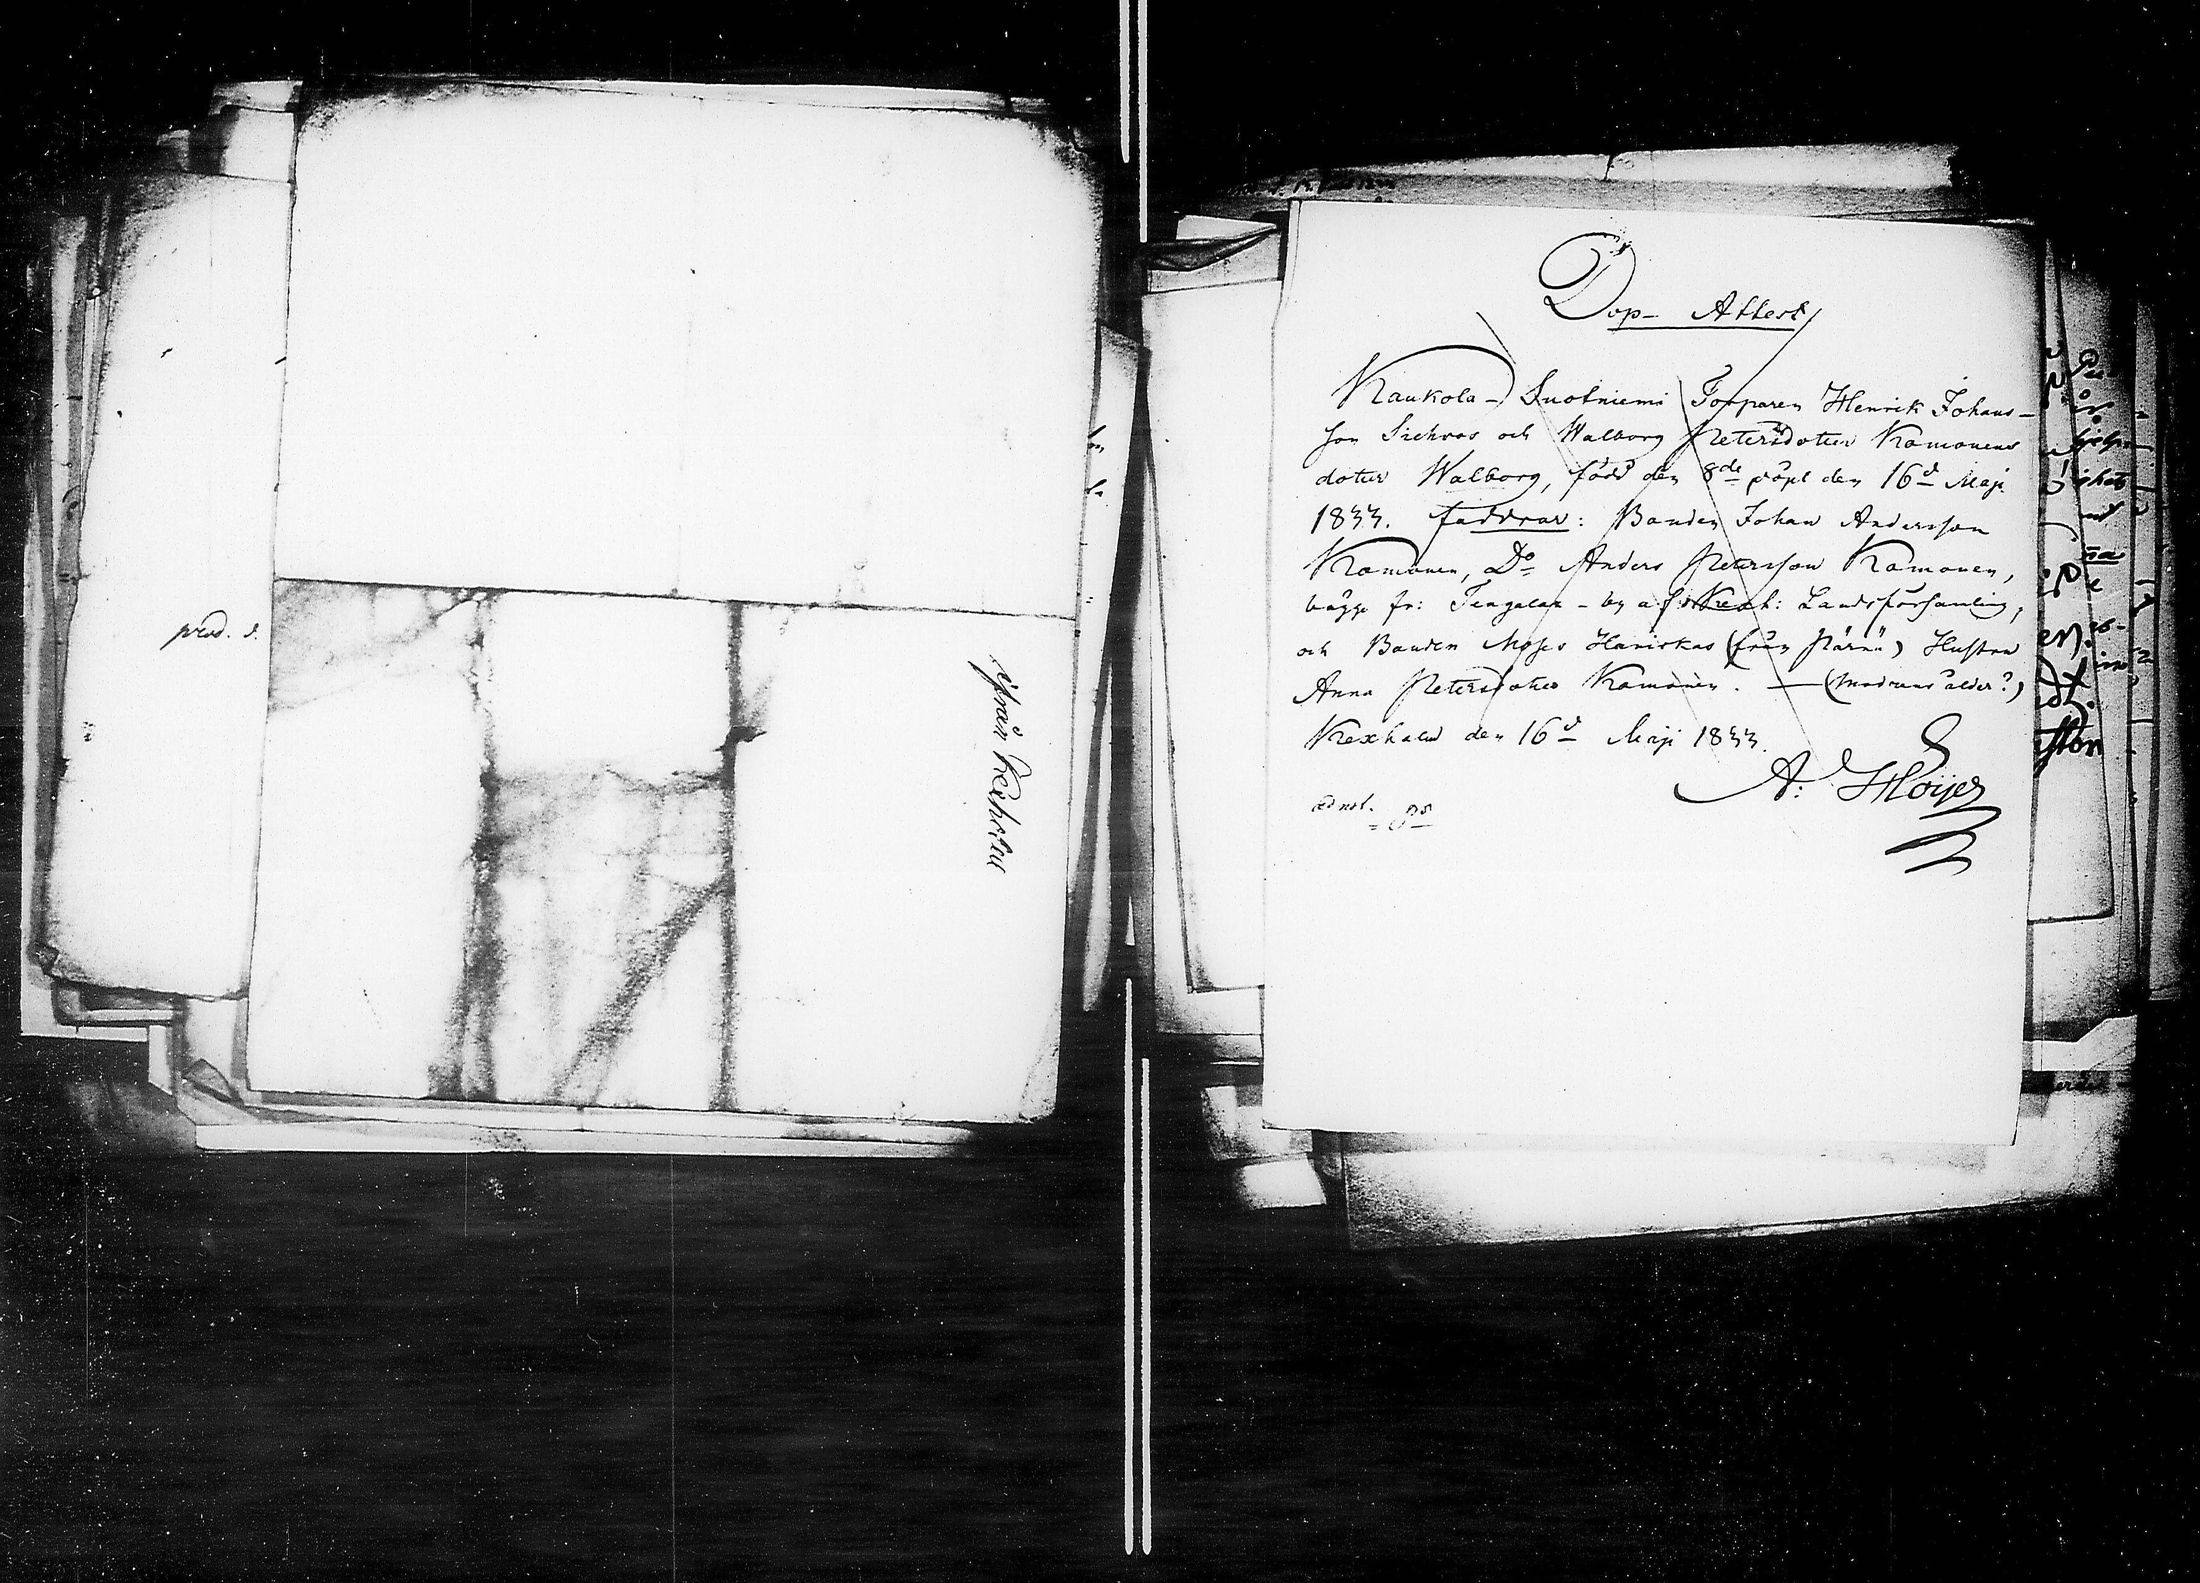 prod. d.
ifrån Kexholm
Dop- Attest
Kaukola- Suotniemi Torparen Henrik Johans-
son Sichvos och Walborg Petersdotter Kamonens
dotter Walborg, född den 8de döpt den 16d Maji
1833. Faddrar: Bonden Johan Andersson
Kamonen, Do Anders Petersson Kamonen,
bägge fr: Tengalax-by af Kexh: Landsförsamling,
och Bonden Moses Haniskas (från Pärnä) Hustru
Anna Petersdotter Kamonen. — (modrens ålder?)
Kexholm den 16d Maji 1833.
A: Höijer
adnot.